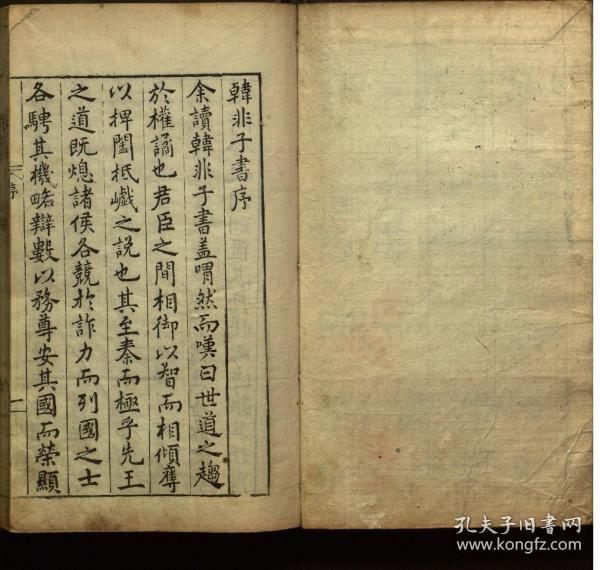 韓非子書序
余讀韓非子書蓋喟然而嘆曰世道之趨
於權譎也君臣之間相御以智而相傾奪
以捭闔抵巇之說也其至秦而極乎先王
之道既熄諸侯各競於詐力而列國之士
各騁其機略辯數以務尊安其國而榮顯
序
一
孔夫子旧书网
www.kongfz.com